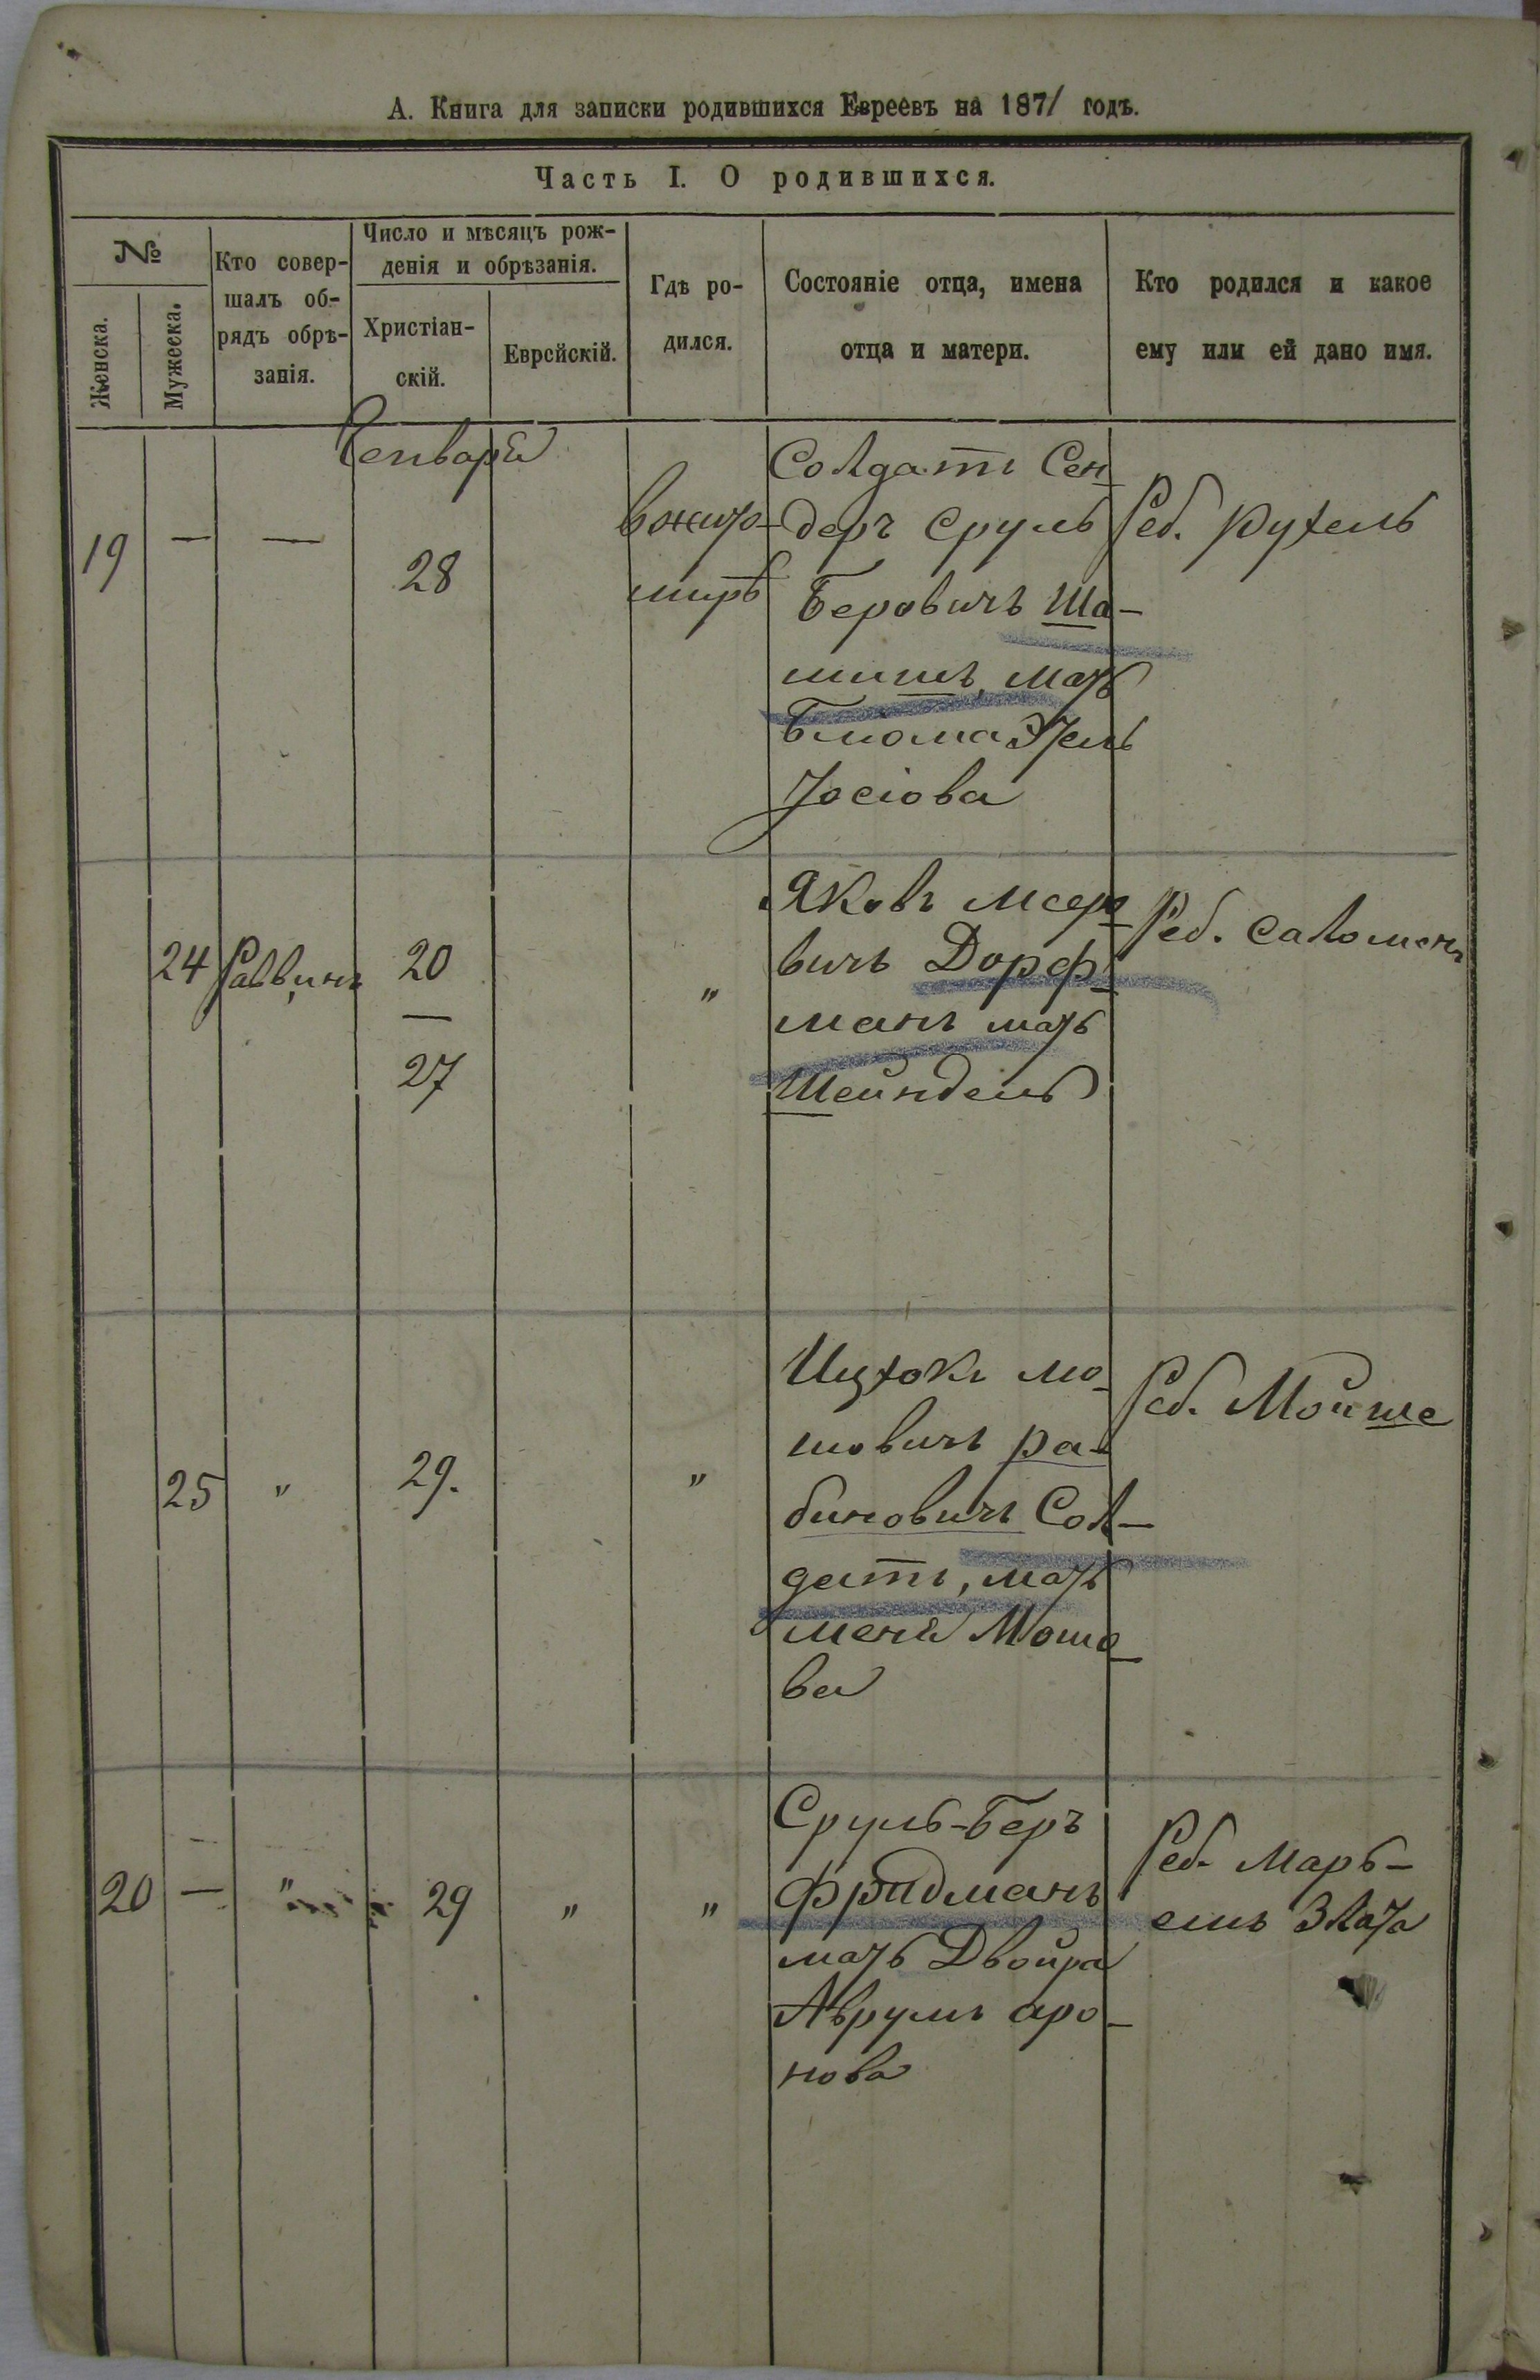 А. Книга для записки родившихся Евреевъ на 1871 годъ.
Часть I. О родившихся.
№
Женска.
Мужеска.
Кто совер-
шалъ об-
рядъ обрѣ-
занія.
Число и мѣсяцъ рож-
денія и обрѣзанія.
Христіан-
скій.
Еврейскій.
Гдѣ ро-
дился.
Состояніе отца, имена
отца и матери.
Кто родился и какое
ему или ей дано имя.
Генваря
19 — — 28
вжито-
мирѣ
Солдатъ Сен-
деръ Сруль
Беровичъ Ша-
мать
Блюма Этель
Іосіова
Реб. Рухель
24 Раввинъ 20
—
27
"
Яковъ Меер-
вичъ Дорф-
манъ мать
Шейндель
Реб. Саломонъ
25 " 29. "
Ицхокъ Мо-
шовичъ Ра-
биновичъ Сол-
датъ, мать
Меня Мошо-
ва
Реб. Мойше
20 — " 29 " "
Сруль-Беръ
Фридманъ
мать Двойра
Аврумъ Аро-
нова
Реб. Марь-
емъ Злата